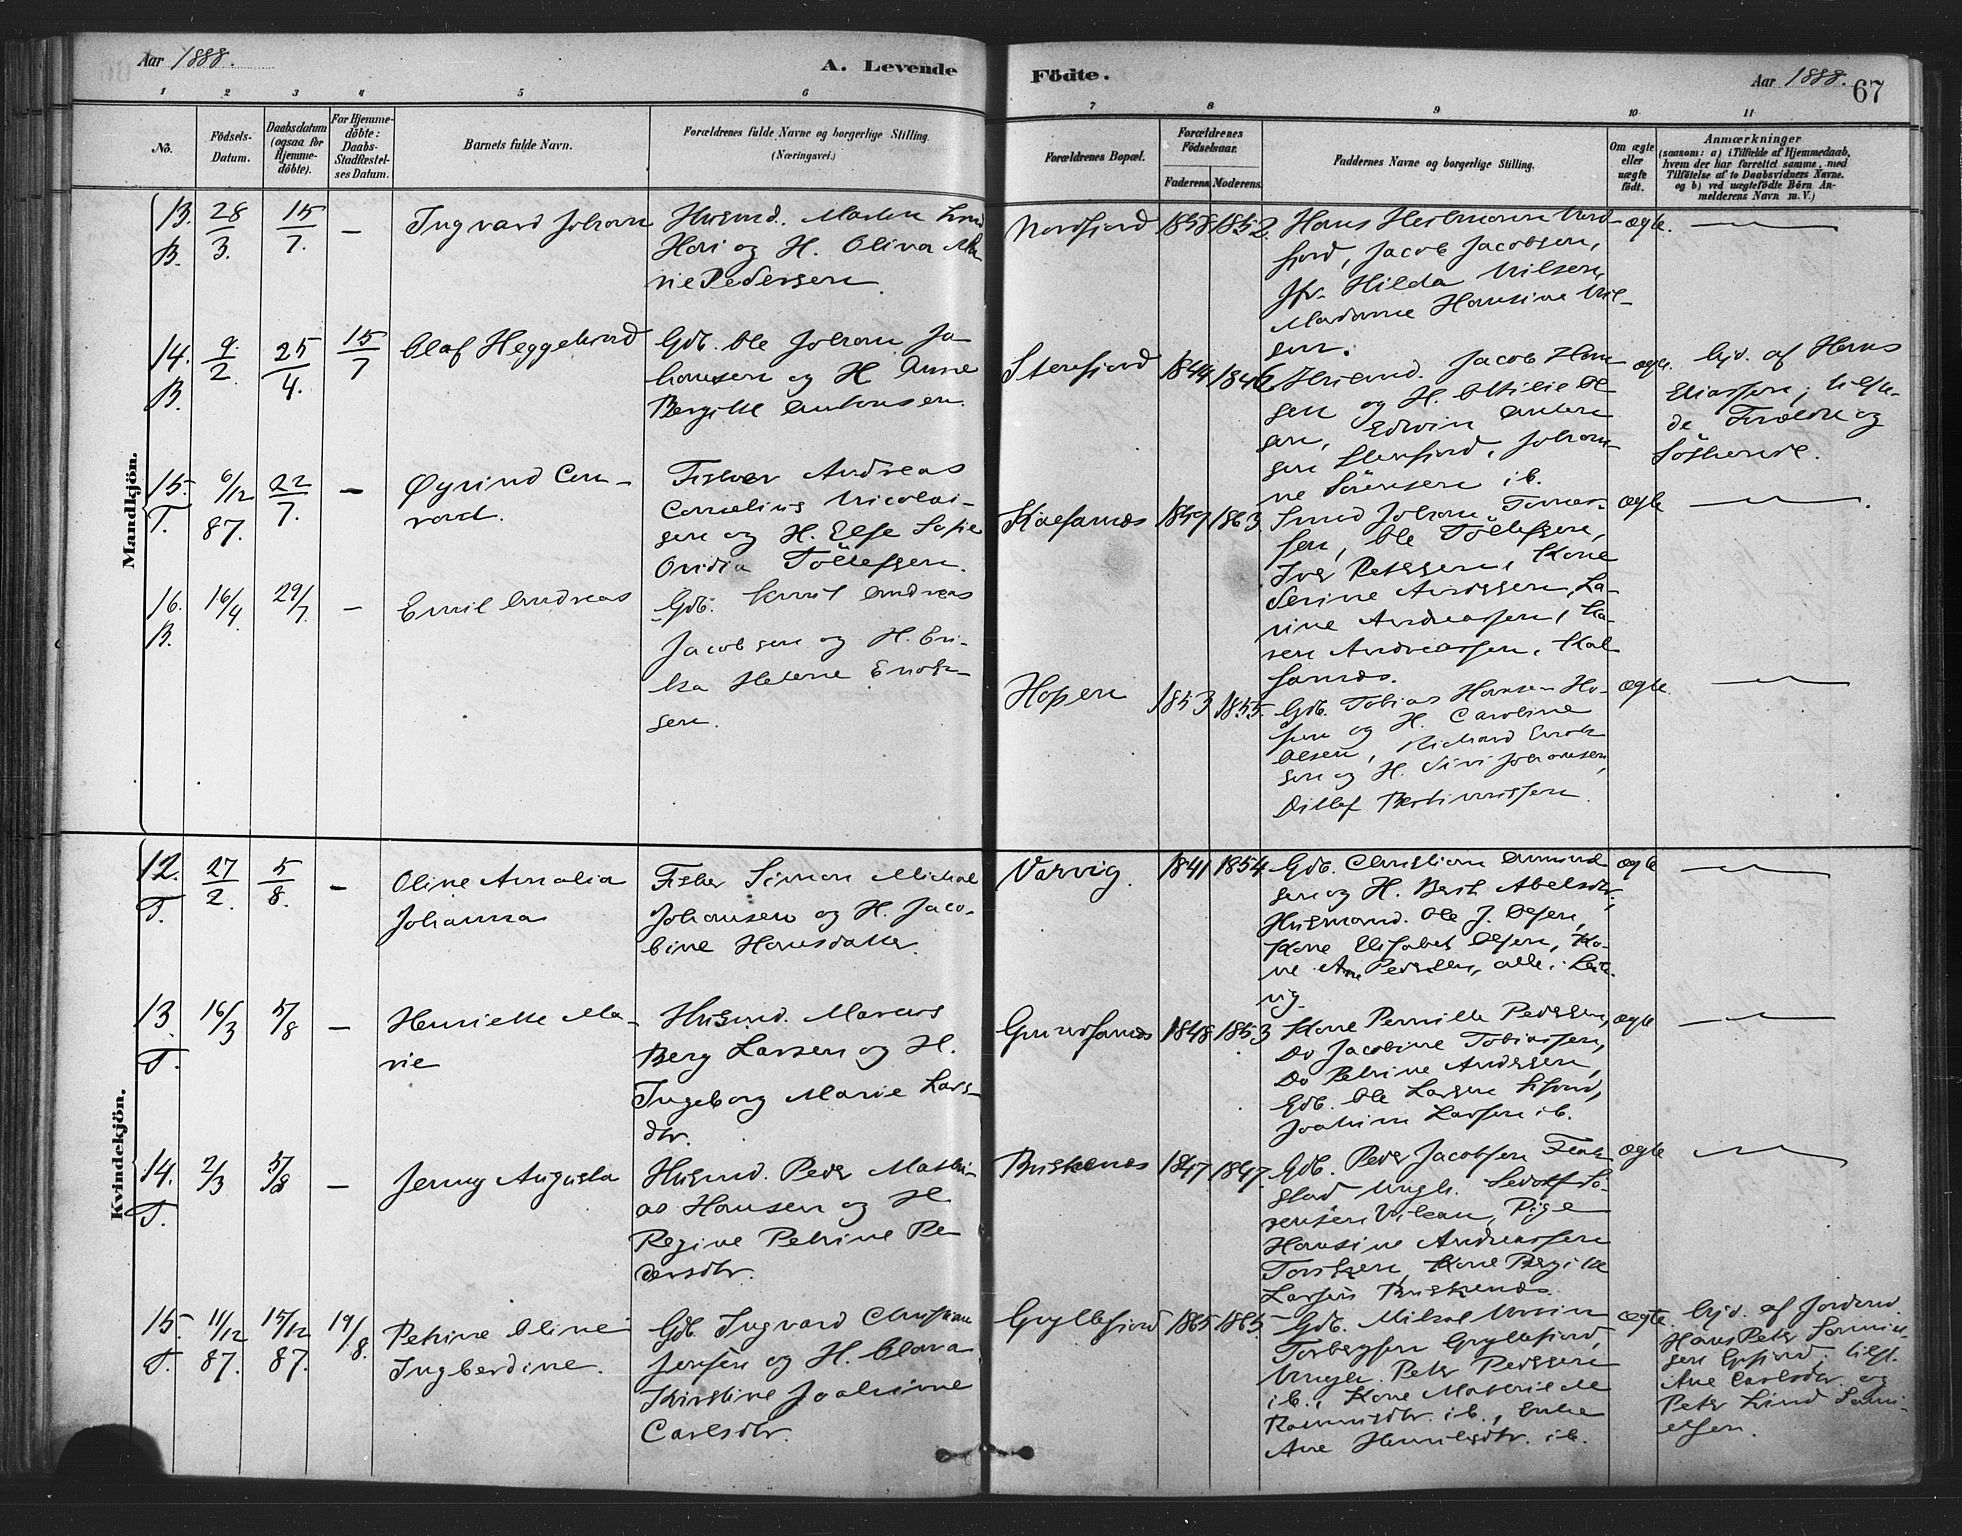 Aar 1888.
A. Levende
Födte.
Aar 1888.
67
1 2 3 4 5 6 7 8 9 10 11
No.
Födsels-
Datum.
Daabsdatum
(ogsaa for
Hjemme-
döbte).
For Hjemme-
döbte:
Daabs-
Stadfæstel-
ses Datum.
Barnets fulde Navn.
Forældrenes fulde Navne og borgerlige Stilling.
(Næringsvei.)
Forældrenes Bopæl.
Forældrenes
Födselsaar.
Faderens. Moderens.
Faddernes Navne og borgerlige Stilling.
Om ægte
eller
uægte
födt.
Anmærkninger
(saasom: a) i Tilfælde af Hjemmedaab,
hvem der har forrettet samme, med
Tilföielse af to Daabsvidners Navne.
og b) ved uægtefödte Börn An-
melderens Navn m. V.)
Mandkjön.
13.
B.
28/3.
15/7.
—
Ingvard Johan
Husmd. Martin
og H. Oliva Ma
rie Pedersen
Nordfjord
1858
1852.
Hans Heitmann Nord-
fjord, Jacob Jacobsen,
Jfr. Hilda Nilsen,
Madame Hansine Nil-
sen.
ægte.
14.
B.
9/2.
25/4.
15/7
Olaf Heggelund
Gdb. Ole Johan Jo
hansen og H. Anne
Bergitte Antonsen.
Stenfjord
1844
1846
Husmd. Jacob Han
sen og H. Ottilie Ol
sen, Edvin Anton
sen, Stenfjord, Johan-
ne Sörensen ib.
ægte.
Hjd. af Hans
Eliassen; tilste-
de Forældre og
Söskende.
15.
T.
6/12
87.
22/7.
—
Øyvind Con-
rad.
Fisker Andreas
Cornelius Nicolai-
sen og H. Else Sofie
Ovidia Töllefsen.
Kaefarnæs
1859
1863
Smed Johan Tomas-
sen, Ole Töllefsen,
Iver Petersen, Kone
Serine Andersen, La-
rine Andreassen, Ka-
ren Andreassen,
ægte
16.
B.
16/4
29/7.
—
Emil Andreas
Gdb. Emil Andreas
Jacobsen og H. Eri-
ka Helene Enok-
sen.
Hopen
1853
1855.
Gdb. Tobias Hansen Ho-
pen og H. Caroline
Olsen, Richard Enok
sen og H. Sivi Johansen,
Ditlef Bertheussen.
ægte.
Kvindekjön.
12.
T.
27/2.
5/8.
—
Oline Amalia
Johanna
Fisker Simon Mikal
Johansen og H. Jaco-
bine Hansdatter.
Vorvig.
1841
1854
Gdb. Christian Amund
sen og H. Berit Abelsdtr.,
Husmand. Ole J. Olsen,
Kone Elisabet Olsen, Ko-
ne Ane Pedersen, alle i
vig.
ægte
13.
T.
16/3
5/8
—
Henriette Ma-
rie
Husmd. Marcus
Berg Larsen og H.
Ingeborg Marie Lars-
dtr.
Grundfarnæs
1848
1853
Kone Pernille Pedersen,
Do Jacobine Tobiassen,
Do Petrine Andersen,
Gdb. Ole Larsen
Joakim Larsen ib.
ægte
14.
T.
2/3
5/8
—
Jenny Augusta
Husmd. Peder Mathi-
as Hansen og H
Regine Petrine Pe
dersdtr.
Buskenæs
1847
1847.
Gdb. Peder Jacobsen Flak
stad Ungk. Sedolf Sö-
rensen Pige
Hansine Andreassen
Torsken, Kone Bergitte
Larsen Buskenæs.
ægte
15.
T.
11/12
87.
15/12
87.
19/8.
Petrine Oline
Ingberdine.
Gdb. Ingvard Christian
Jensen og H. Olava
Kirstine Joakimine
Carlsdtr.
Gryllefjord
1865
1865.
Gdb. Mikal
Torbergsen Gryllefjord,
Ungk. Peter Pedersen
ib., Kone
ib., Enke
Ane Henriksdtr. ib.
ægte.
Hjd. af Jordmd.
Hans Peter
sen tilst.
Ane Carlsdtr. og
Peter Lind Sam-
elsen.